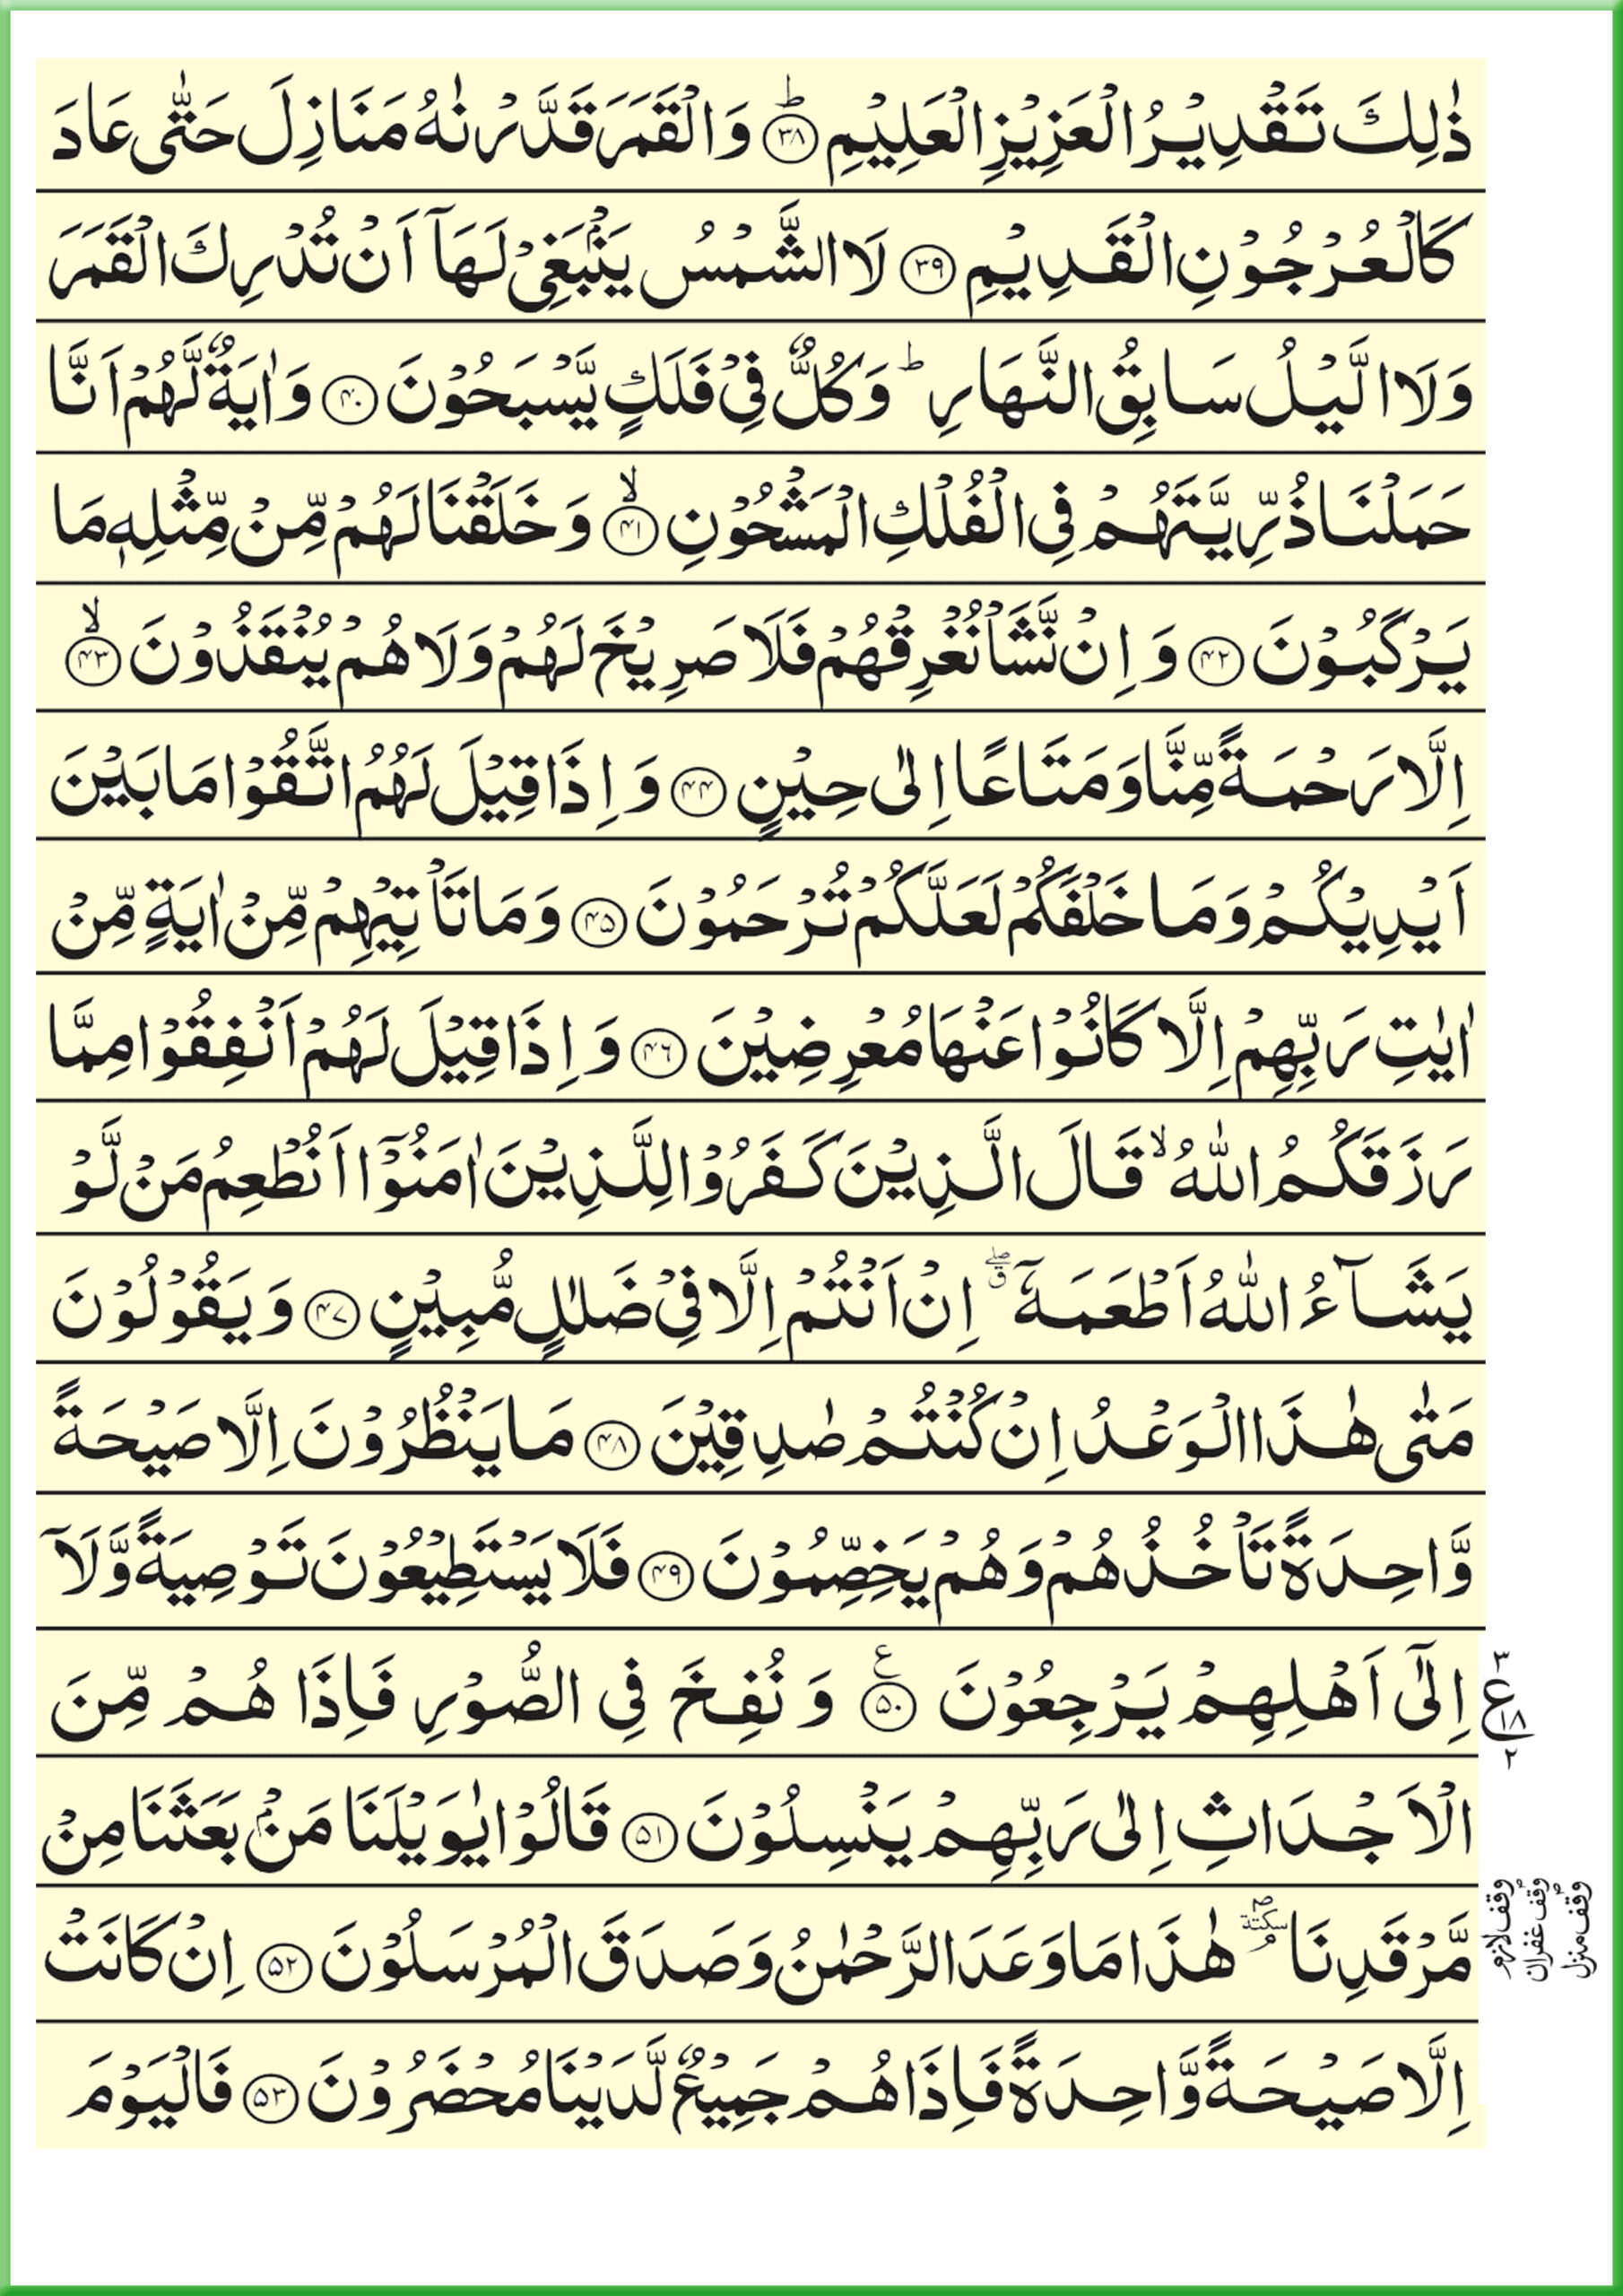 ذٰلِكَ تَقْدِيْرُ الْعَزِيْزِ الْعَلِيْمِ ؕ‏ ﴿۳۸﴾ وَالْقَمَرَ قَدَّرْنٰهُ مَنَازِلَ حَتّٰى عَادَ
كَالْعُرْجُوْنِ الْقَدِيْمِ ﴿۳۹﴾ لَا الشَّمْسُ يَنْۢبَغِىْ لَهَاۤ اَنْ تُدْرِكَ الْقَمَرَ
وَلَا الَّيْلُ سَابِقُ النَّهَارِ ؕ وَكُلٌّ فِىْ فَلَكٍ يَّسْبَحُوْنَ ﴿۴۰﴾ وَاٰيَةٌ لَّهُمْ اَنَّا
حَمَلْنَا ذُرِّيَّتَهُمْ فِى الْفُلْكِ الْمَشْحُوْنِ ۙ ﴿۴۱﴾ وَخَلَقْنَا لَهُمْ مِّنْ مِّثْلِهٖ مَا
يَرْكَبُوْنَ ﴿۴۲﴾ وَاِنْ نَّشَاْ نُغْرِقْهُمْ فَلَا صَرِيْخَ لَهُمْ وَلَا هُمْ يُنْقَذُوْنَ ۙ ﴿۴۳﴾
اِلَّا رَحْمَةً مِّنَّا وَمَتَاعًا اِلٰى حِيْنٍ ﴿۴۴﴾ وَاِذَا قِيْلَ لَهُمُ اتَّقُوْا مَا بَيْنَ
اَيْدِيْكُمْ وَمَا خَلْفَكُمْ لَعَلَّكُمْ تُرْحَمُوْنَ ﴿۴۵﴾ وَمَا تَاْتِيْهِمْ مِّنْ اٰيَةٍ مِّنْ
اٰيٰتِ رَبِّهِمْ اِلَّا كَانُوْا عَنْهَا مُعْرِضِيْنَ ﴿۴۶﴾ وَاِذَا قِيْلَ لَهُمْ اَنْفِقُوْا مِمَّا
رَزَقَكُمُ اللّٰهُ ۙ قَالَ الَّذِيْنَ كَفَرُوْا لِلَّذِيْنَ اٰمَنُوْۤا اَنُطْعِمُ مَنْ لَّوْ
يَشَآءُ اللّٰهُ اَطْعَمَهٗۤ ۖ ق اِنْ اَنْتُمْ اِلَّا فِىْ ضَلٰلٍ مُّبِيْنٍ ﴿۴۷﴾ وَيَقُوْلُوْنَ
مَتٰى هٰذَا الْوَعْدُ اِنْ كُنْتُمْ صٰدِقِيْنَ ﴿۴۸﴾ مَا يَنْظُرُوْنَ اِلَّا صَيْحَةً
وَّاحِدَةً تَاْخُذُهُمْ وَهُمْ يَخِصِّمُوْنَ ﴿۴۹﴾ فَلَا يَسْتَطِيْعُوْنَ تَوْصِيَةً وَّلَاۤ
اِلٰٓى اَهْلِهِمْ يَرْجِعُوْنَ ع ﴿۵۰﴾ وَنُفِخَ فِى الصُّوْرِ فَاِذَا هُمْ مِّنَ
۳ ع ۱۸ ۲
الْاَجْدَاثِ اِلٰى رَبِّهِمْ يَنْسِلُوْنَ ﴿۵۱﴾ قَالُوْا يٰوَيْلَنَا مَنْۢ بَعَثَنَا مِنْ
مَّرْقَدِنَا ۘ سكتة هٰذَا مَا وَعَدَ الرَّحْمٰنُ وَصَدَقَ الْمُرْسَلُوْنَ ﴿۵۲﴾ اِنْ كَانَتْ
وقف لازم
وقف غفران
وقف منزل
اِلَّا صَيْحَةً وَّاحِدَةً فَاِذَا هُمْ جَمِيْعٌ لَّدَيْنَا مُحْضَرُوْنَ ﴿۵۳﴾ فَالْيَوْمَ